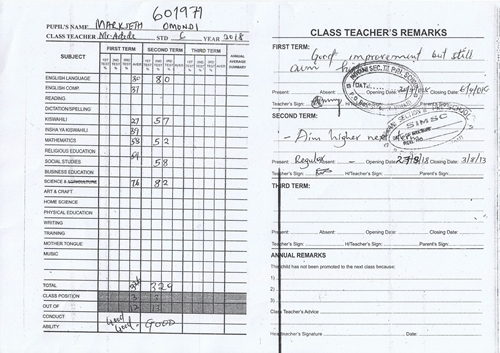 601979
PUPIL'S NAME MARKJETH OMONDI
CLASS TEACHER Mr. STD 6 YEAR 2018
SUBJECT FIRST TERM SECOND TERM THIRD TERM ANNUAL AVERAGE SUMMARY
1ST TEST % 2ND TEST % 3RD TEST % AVER 1ST TEST % 2ND TEST % 3RD TEST % AVER 1ST TEST % 2ND TEST % 3RD TEST % AVER
ENGLISH LANGUAGE 30 80
ENGLISH COMP. 31
READING
DICTATION/SPELLING
KISWAHILI 27 57
INSHA YA KISWAHILI
MATHEMATICS 58 52
RELIGIOUS EDUCATION
SOCIAL STUDIES 58
BUSINESS EDUCATION
SCIENCE & AGRICULTURE 76 82
ART & CRAFT
HOME SCIENCE
PHYSICAL EDUCATION
WRITING
TRAINING
MOTHER TONGUE
MUSIC
TOTAL 329
CLASS POSITION 3 3
OUT OF 12 13
CONDUCT Good
ABILITY Good GOOD
CLASS TEACHER'S REMARKS
FIRST TERM: Good improvement but still
aim
Present: Closing Date:
Teacher's Sign: H/Teacher's Sign: Parent's Sign:
SECOND TERM:
- Aim higher next
Present: Regular Absent: Opening Date: 27/8/18 Closing Date: 3/8/13
Teacher's Sign: H/Teacher's Sign: Parent's Sign:
SIMSC
THIRD TERM:
Present: Absent: Opening Date: Closing Date:
Teacher's Sign: H/Teacher's Sign: Parent's Sign:
ANNUAL REMARKS
This child has not been promoted to the next class because:
1)
2)
3)
Class Teacher's Advice
Headteacher's Signature Date: